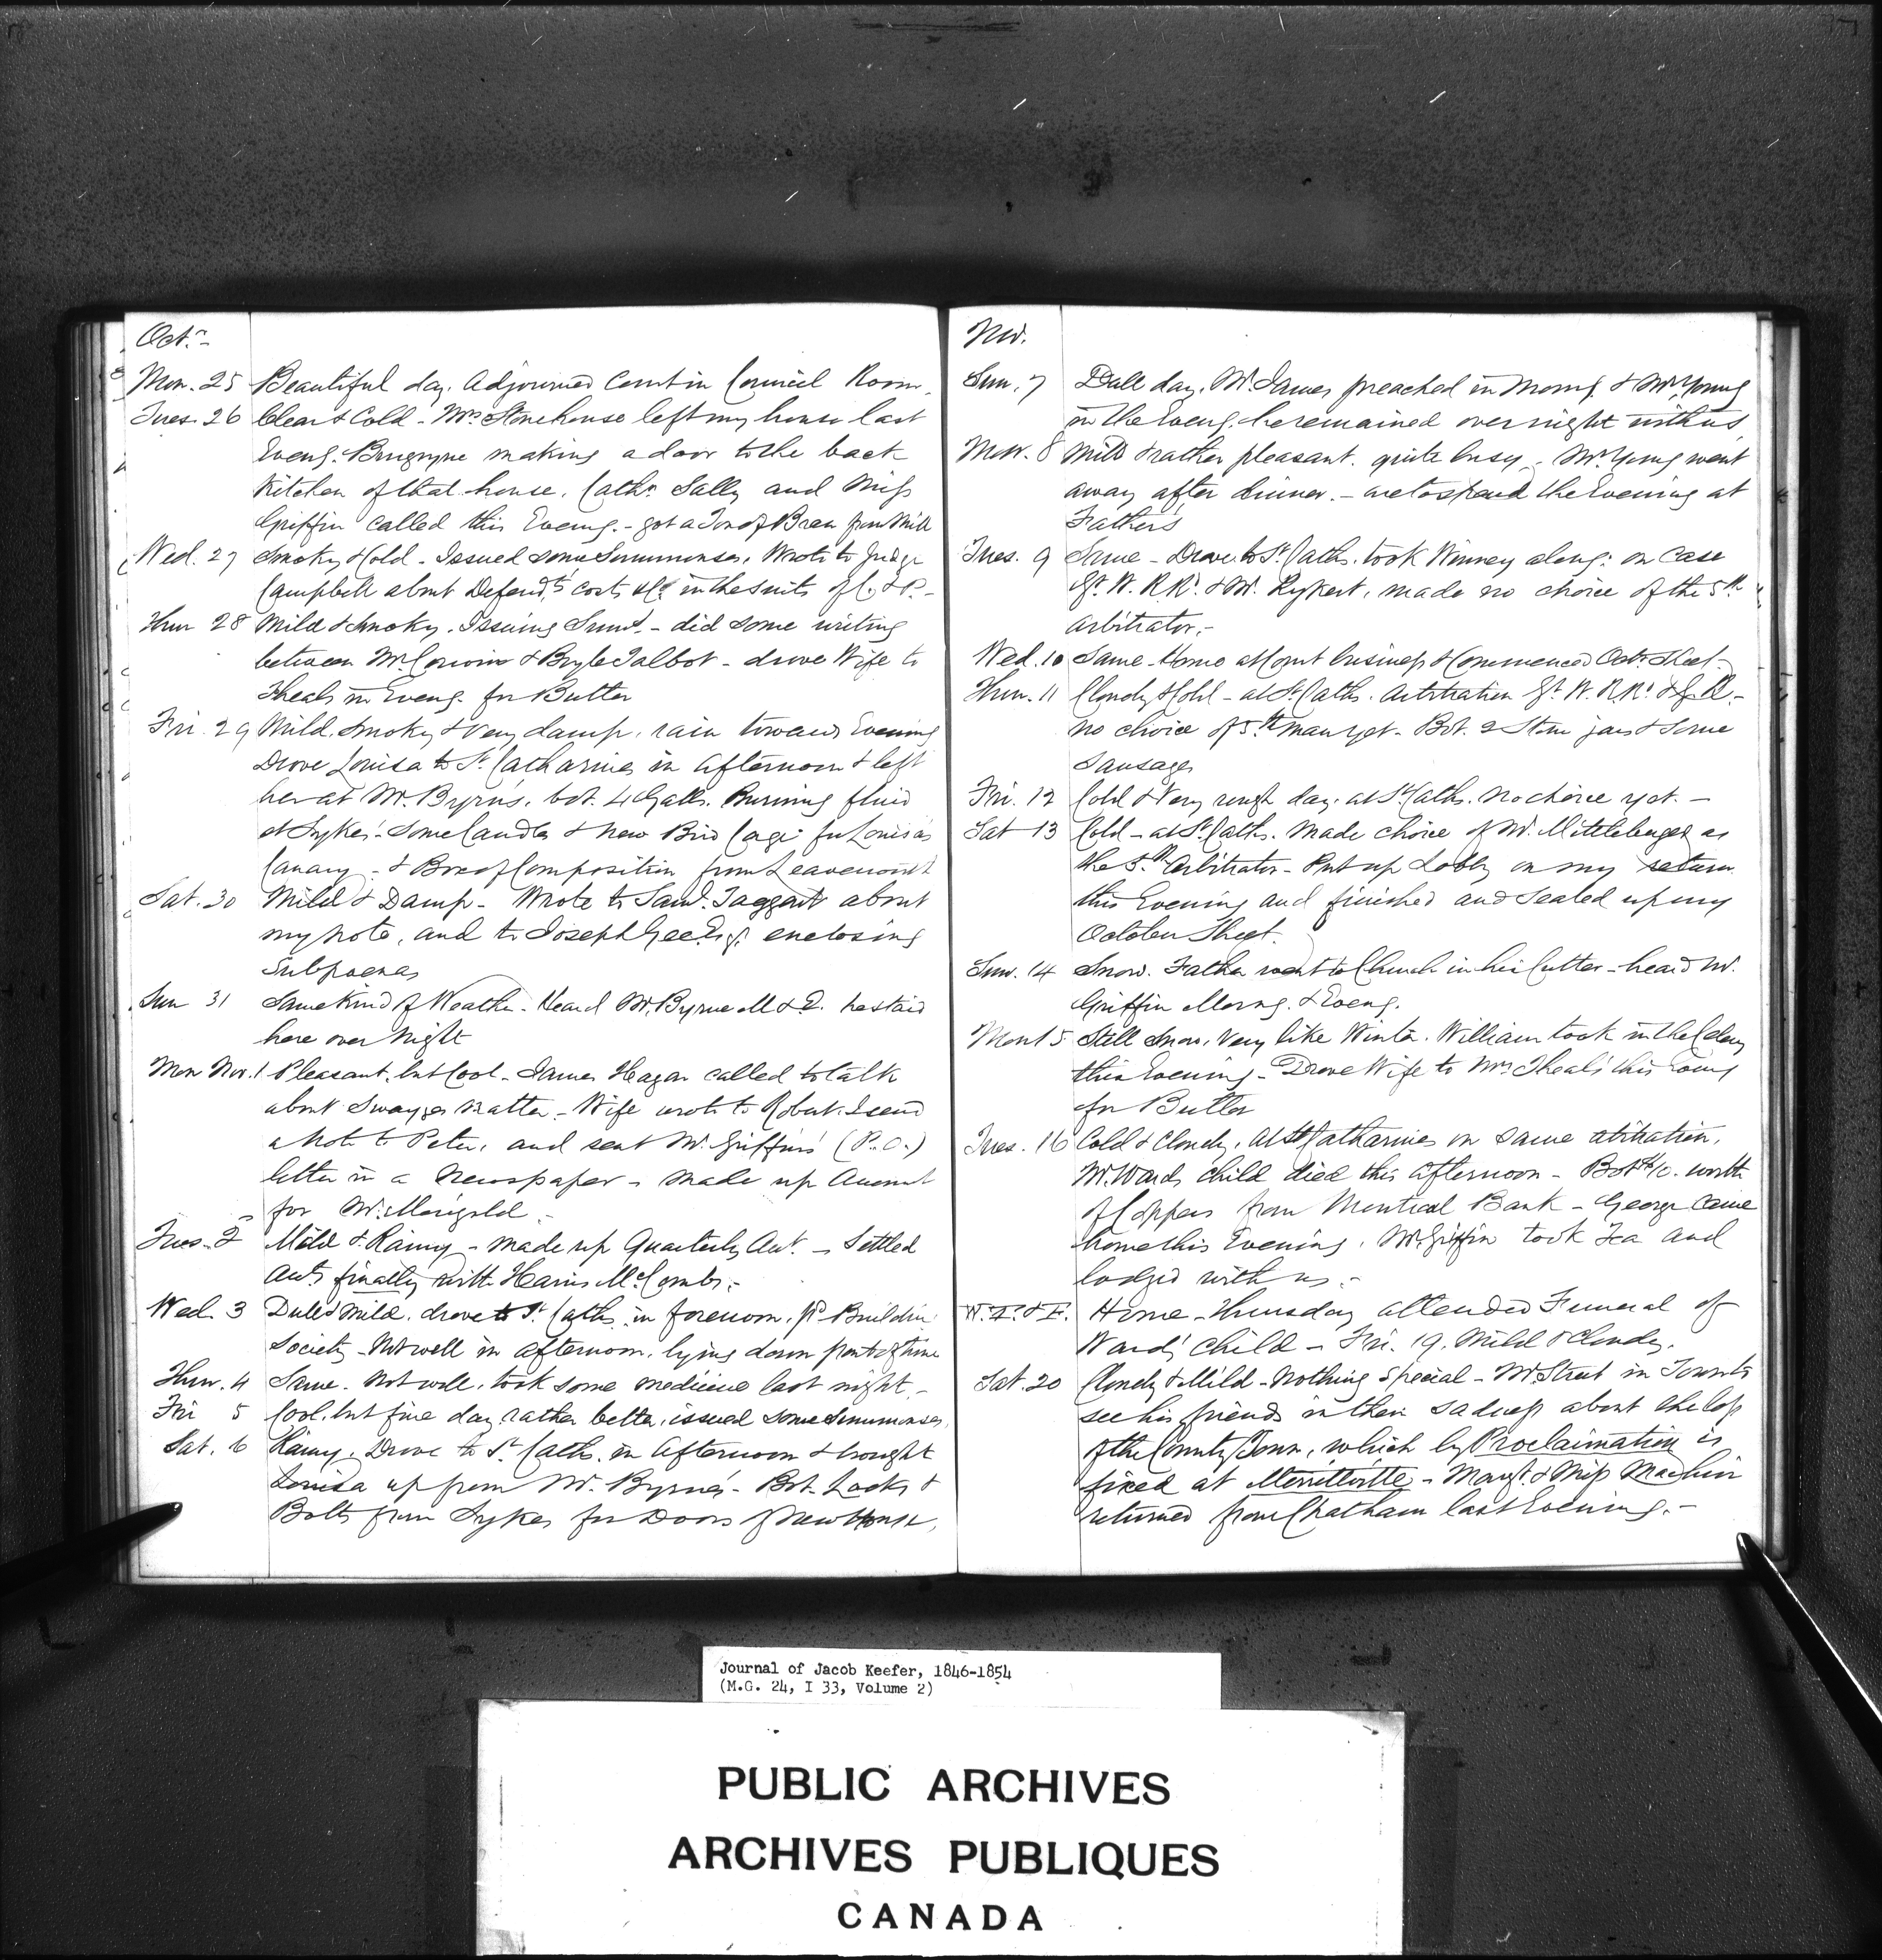 Oct.-
Mon. 25 Beautiful day. Adjourned Court in Council Room.
Tues. 26 Clear & Cold - Mrs. Stonehouse left my house last
Eveng. making a door to the back
Kitchen of that house. Cathe. Sally and Miss
Griffin called this Eveng. - got a Ton of Bran from Mill
Wed. 27 Smoky & Cold - Issued some Summonses. Wrote to Judge
Campbell about Defendts. costs &c. in the suits of C. & P. -
Thur 28 Mild & Smoky. Issuing Sums. - did some writing
between Mr. Corwin & Boyle Talbot - drove Wife to
Theals in Eveng. for Butter
Fri. 29 Mild, Smoky & Very damp, rain towards Evening
Drove Louisa to St. Catharines in Afternoon & left
her at Mr. Byrn's, bot. 4 Galls. Burning fluid
at Sykes' - Some Candles & new Bird Cage for Louisa's
Canary - & Box of Composition from Leavenworth
Sat. 30 Mild & Damp - Wrote to Saml. Taggart about
my note, and to Joseph Gee Esq. enclosing
Subpoenas
Sun 31 Same Kind of Weather. Heard Mr. Byrne M & E. he staid
here over Night
Mon Nov. 1 Pleasant, but Cool - James Hagar called to talk
about Swayzes matter - Wife wrote to Robert. I send
a Note to Peter, and sent Mr. Griffin's (P.O.)
letter in a Newspaper - made up Account
for Mr. Marigold -
Tues. 2 Mild & Rainy - made up Quarterly Act. - Settled
Acts finally with Haris McCombs. -
Wed. 3 Dull & Mild. drove to St. Caths. in forenoon. pd. Building
Society - Not well in afternoon, lying down part of time
Thur. 4 Same. Not well, took some medicine last night. -
Fri 5 Cool, but fine day, rather better, issued some Summonses
Sat. 6 Rainy. Drove to St. Caths. in Afternoon & brought
Louisa up from Mr. Byrne's - Bot. Locks &
Bolts from Sykes for Doors of New House.
Nov.
Sun. 7 Dull day. Mr. James preached in Morng. & Mr. Young
in the Eveng. he remained over night with us
Mon. 8 Mild & rather pleasant. quite busy. Mr. Young went
away after dinner. - are to spend the Evening at
Father's
Tues. 9 Same - Drove to St. Caths. took Winney along: on Case
Gt. W. R.R. & Mr. Rykert, made no choice of the 5th
Arbitrator. -
Wed. 10 Same. Home at Court business & Commenced Octr. Sheet -
Thur. 11 Cloudy & Cold - at St. Caths. Arbitration Gt. W. R.R. & G. R. -
no choice of 5th man yet. Bot. 2 Stone jars & some
Sausages
Fri. 12 Cold & Very rough day. at St. Caths. No choice yet. -
Sat 13 Cold - at St. Caths. Made choice of Mr. Mittleberger as
the 5th. Arbitrator - Put up Lobby on my return
this Evening and finished and sealed up my
October Sheet.
Sun. 14 Snow. Father went to Church in his Cutter - heard Mr.
Griffin Morng. & Eveng.
Mon 15 Still Snow, Very like Winter. William took in the Celery
this Evening - Drove Wife to Mrs. Theals' this Eveng
for Butter
Tues. 16 Cold & Cloudy, At St. Catharines on same abitration.
Mr. Wards child died this Afternoon - Bot worth
of Coppers from Montreal Bank - George came
home this Evening. Mr. Griffin took Tea and
lodged with us. -
W. T. & F. Home - Thursday attended Funeral of
Wards' Child - Fri. 19. Mild & Cloudy.
Sat. 20 Cloudy & Mild - Nothing Special - Mr. Street in Town to
see his friends in their sadness about the loss
of the County Town, which by Proclaimation is
fixed at Merrittville - Margt. & Miss Machin
returned from Chatham last Evening. -
Journal of Jacob Keefer, 1846-1854
(M.G. 24, I 33, Volume 2)
PUBLIC ARCHIVES
ARCHIVES PUBLIQUES
CANADA